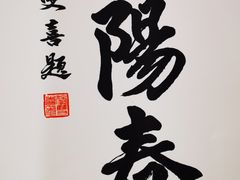 陽春
喜題